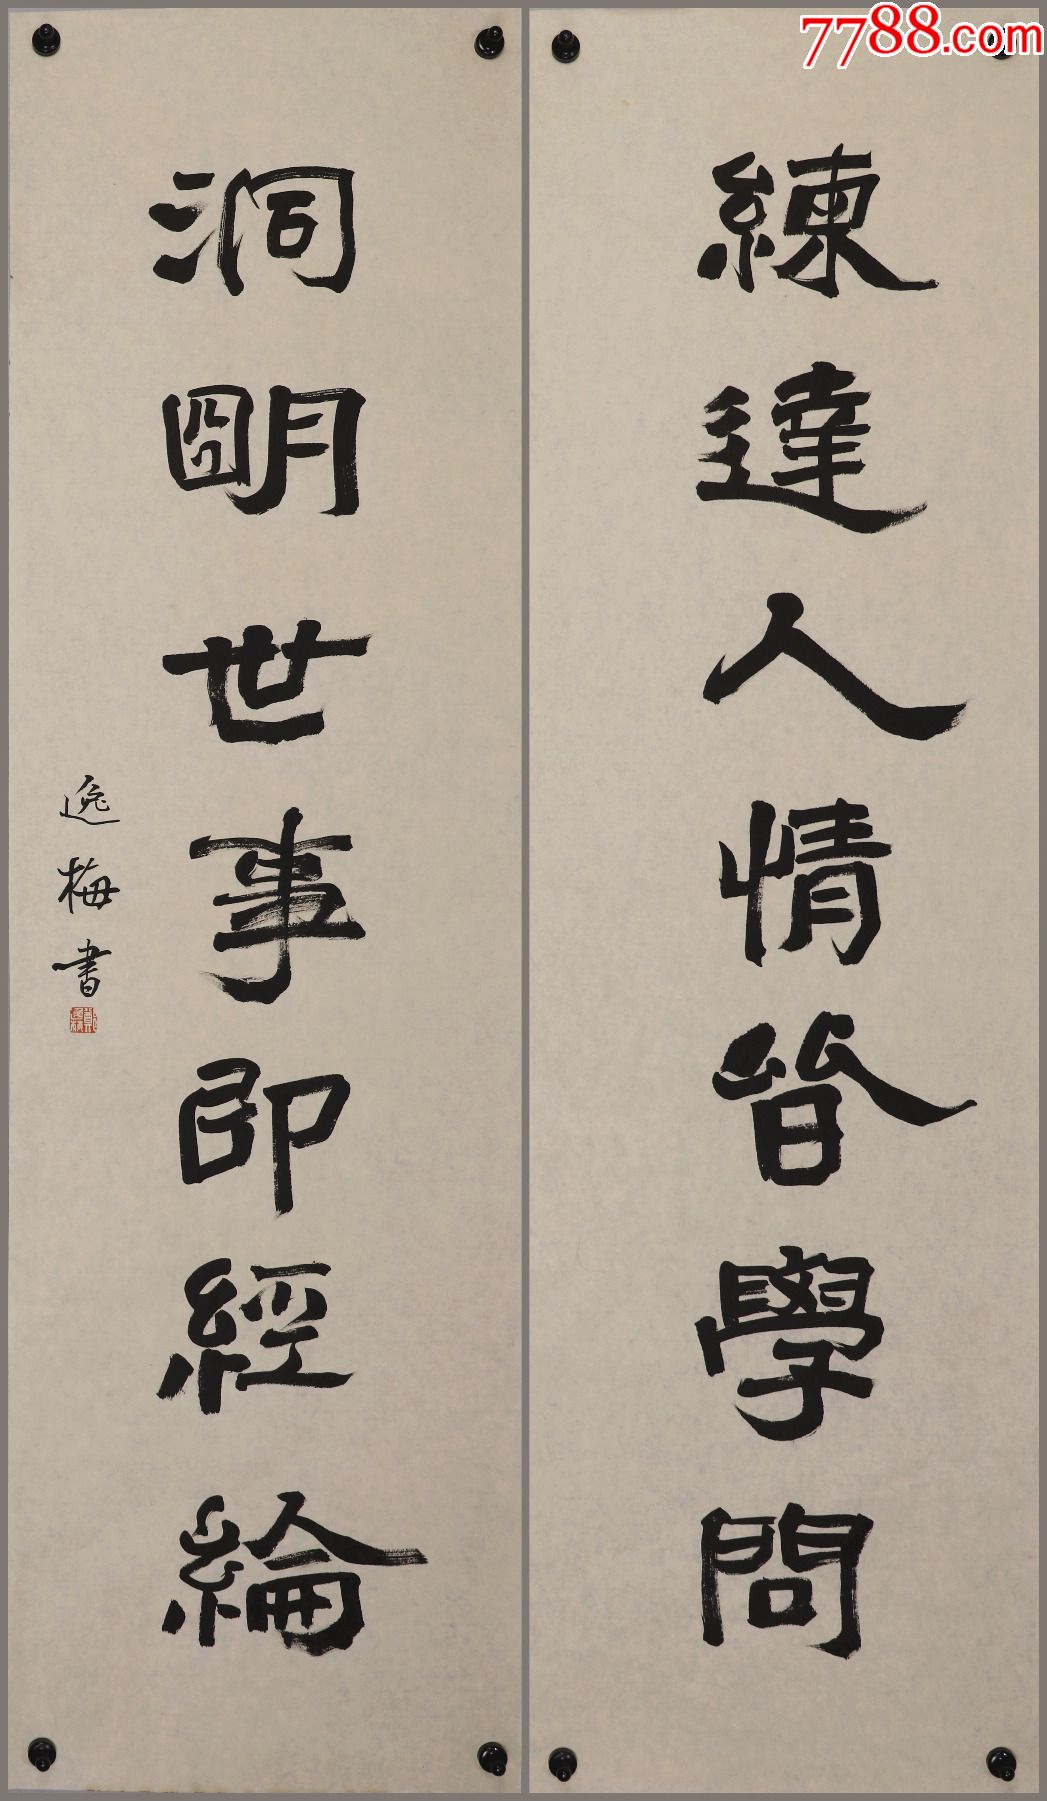 7788.com
練達人情皆學問
洞明世事即經綸
逸梅書